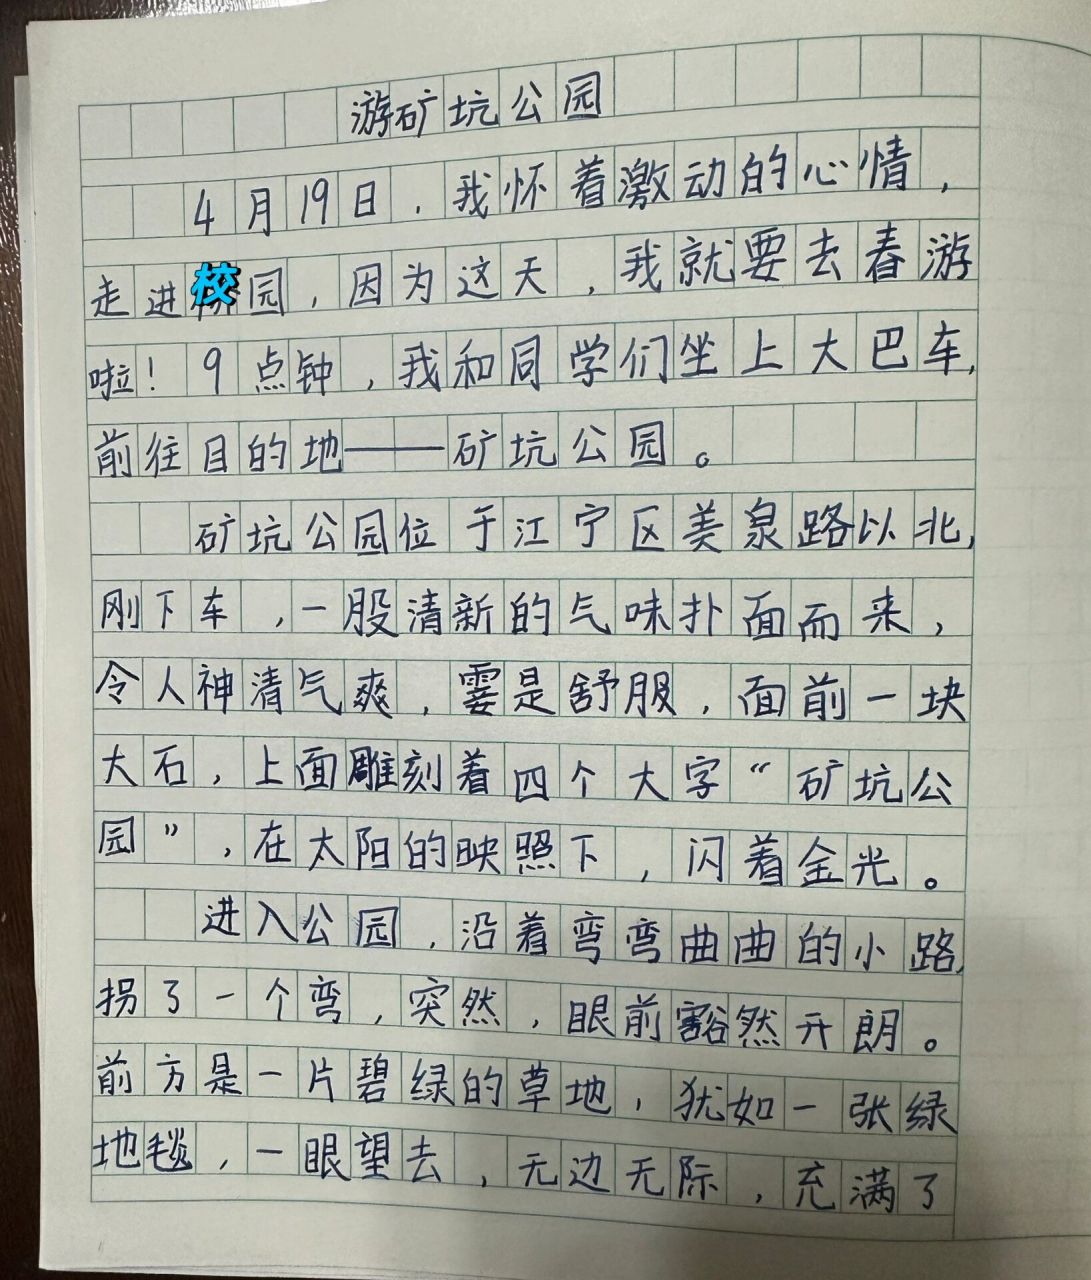 游矿坑公园
4月19日，我怀着激动的心情，
走进校园，因为这天，我就要去春游
啦！9点钟，我和同学们坐上大巴车，
前往目的地——矿坑公园。
矿坑公园位于江宁区美泉路以北，
刚下车，一股清新的气味扑面而来，
令人神清气爽，霎是舒服，面前一块
大石，上面雕刻着四个大字“矿坑公
园”，在太阳的映照下，闪着金光。
进入公园，沿着弯弯曲曲的小路，
拐了一个弯，突然，眼前豁然开朗。
前方是一片碧绿的草地，犹如一张绿
地毯，一眼望去，无边无际，充满了